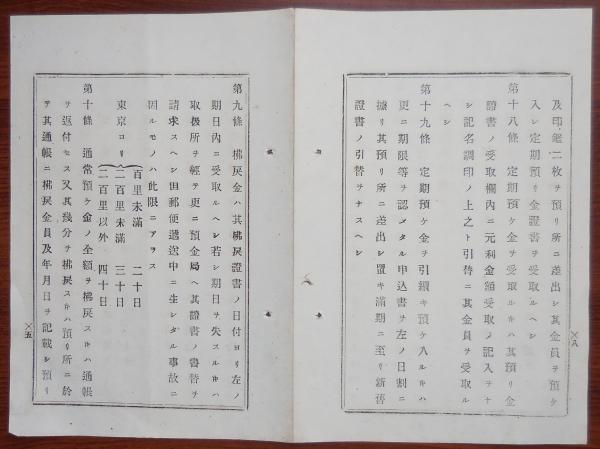 及印鑑二枚ヲ預リ所ニ差出シ其金員ヲ預ケ
入レ定期預リ金證書ヲ受取ルヘシ
第十八條 定期預ケ金ヲ受取ルキハ其預リ金
證書ノ受取欄內ニ元利金額受取ノ記入ヲナ
シ記名調印ノ上之ト引替ニ其金員ヲ受取ル
ヘシ
第十九條 定期預ケ金ヲ引續キ預ケ入ルキハ
更ニ期限等ヲ認メタル申込書ヲ左ノ日割ニ
據リ其預リ所ニ差出シ置キ滿期ニ至リ新舊
證書ノ引替ヲナスヘシ
八
第九條 拂戾金ハ其拂戾證書ノ日付ヨリ左ノ
期日內ニ受取ルヘシ若シ期日ヲ失スルキハ
取扱所ヲ經テ更ニ預金局ヘ其證書ノ書替ヲ
請求スヘシ但郵便遞送中ニ生シタル事故ニ
因ルモノハ此限ニアラス
東京ヨリ
百里未滿 二十日
二百里未滿 三十日
二百里以外 四十日
第十條 通常預ケ金ノ全額ヲ拂戾スルキハ通帳
ヲ返付セス又其幾分ヲ拂戾スルキハ預リ所ニ於
テ其通帳ニ拂戾金員及年月日ヲ記載シ預リ
五